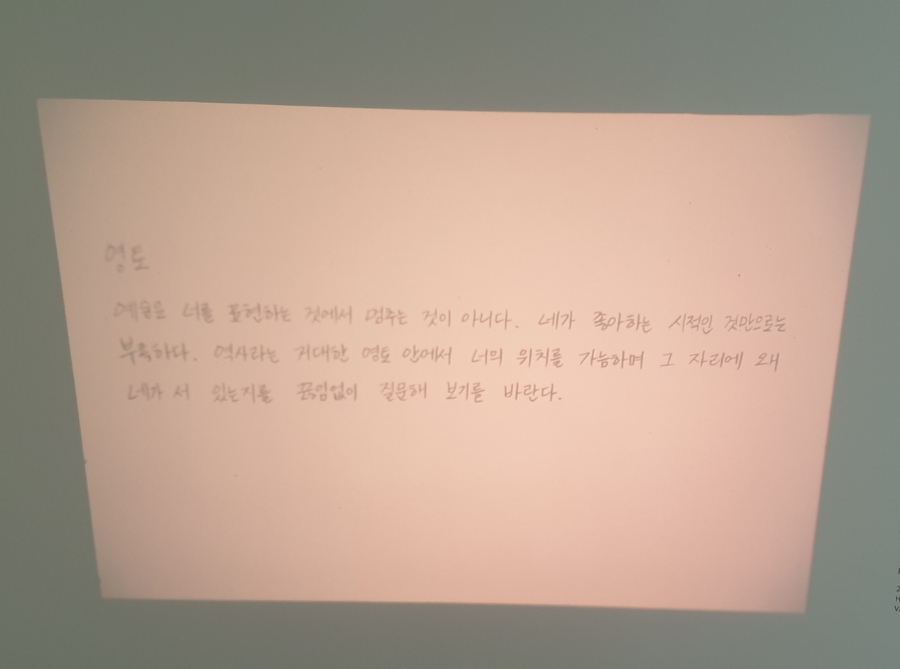 영토
예술은 너를 표현하는 것에서 멈추는 것이 아니다. 네가 좋아하는 시적인 것만으로는
부족하다. 역사라는 거대한 영토 안에서 너의 위치를 가늠하며 그 자리에 왜
네가 서 있는지를 끊임없이 질문해 보기를 바란다.